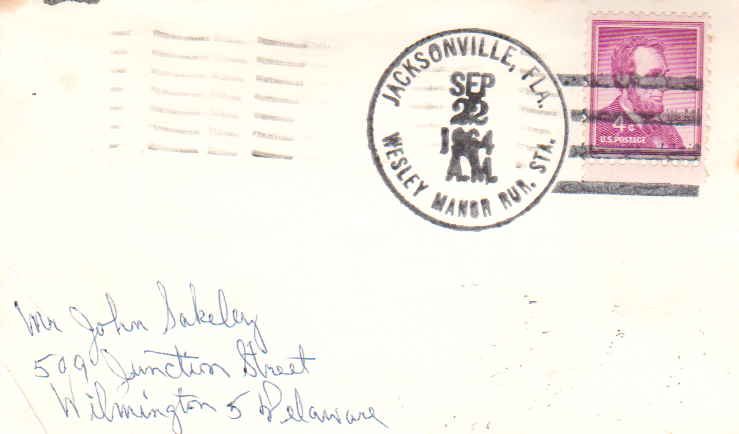 JACKSONVILLE, FLA.
SEP
22
1964
A.M.
WESLEY MANOR RUR. STA.
4¢
U.S. POSTAGE
Mr John Sakeley
509 Junction Street
Wilmington 5 Delaware